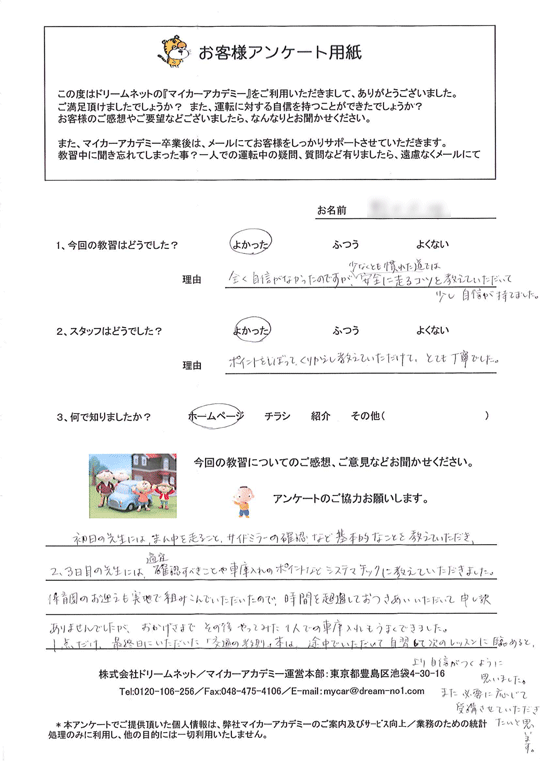 お客様アンケート用紙
この度はドリームネットの『マイカーアカデミー』をご利用いただきまして、ありがとうございました。
ご満足頂けましたでしょうか？ また、運転に対する自信を持つことができたでしょうか？
お客様のご感想やご要望などございましたら、なんなりとお聞かせください。
また、マイカーアカデミー卒業後は、メールにてお客様をしっかりサポートさせていただきます。
教習中に聞き忘れてしまった事？一人での運転中の疑問、質問など有りましたら、遠慮なくメールにて
お名前
1、今回の教習はどうでした？ よかった ふつう よくない
少なくとも慣れた道では
理由 全く自信がなかったのですが、安全に走るコツを教えていただいて
少し自信が持てました。
2、スタッフはどうでした？ よかった ふつう よくない
理由 ポイントをしぼって、くりかえし教えていただけて、とても丁寧でした。
3、何で知りましたか？ ホームページ チラシ 紹介 その他( )
今回の教習についてのご感想、ご意見などお聞かせください。
アンケートのご協力お願いします。
初日の先生には、まん中を走ること、サイドミラーの確認など基本的なことを教えていただき、
2、3日目の先生には、適宜確認すべきことや車庫入れのポイントなどシステマチックに教えていただきました。
保育園のお迎えも実地で組みこんでいただいたので、時間を超過しておつきあいいただいて申し訳
ありませんでしたが、おかげさまでその後やってみた1人での車庫入れもうまくできました。
1点だけ、最終日にいただいた「交通の教則」本は、途中でいただいて自習して次のレッスンに臨めると、
より自信がつくように
思いました。
また必要に応じて
受講させていただき
たいと思い
ます。
株式会社ドリームネット／マイカーアカデミー運営本部：東京都豊島区池袋4-30-16
Tel:0120-106-256／Fax:048-475-4106／E-mail:mycar@dream-no1.com
＊本アンケートでご提供頂いた個人情報は、弊社マイカーアカデミーのご案内及びサービス向上／業務のための統計
処理のみに利用し、他の目的には一切利用いたしません。